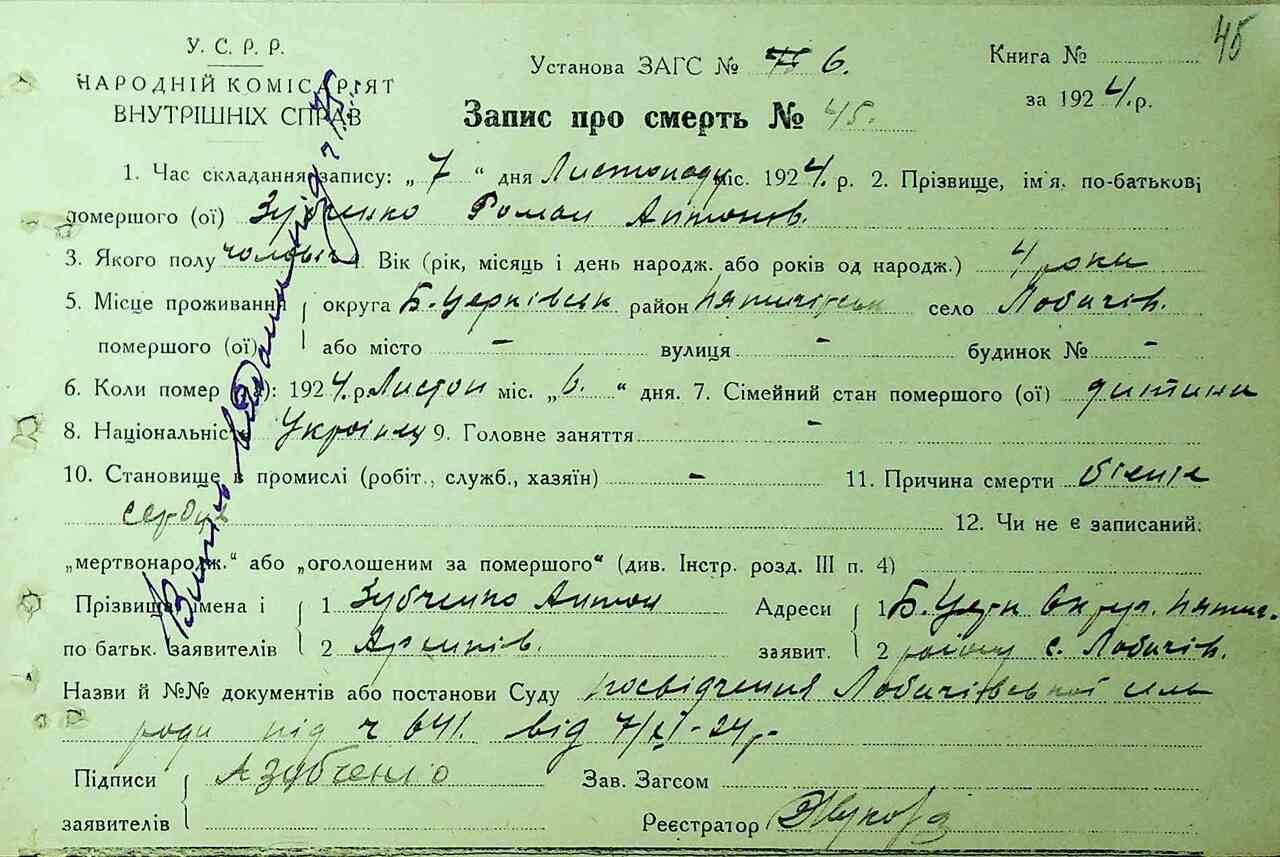 45
У. С. Р. Р.
НАРОДНІЙ КОМІСАРІЯТ
ВНУТРІШНІХ СПРАВ
Установа ЗАГС № 6.
Книга №
за 1924 р.
Запис про смерть № 45.
1. Час складання запису: „7“ дня Листопаду міс. 1924 р. 2. Прізвище, ім'я, по-батькові
помершого (ої) Зубченко Роман Антонів.
3. Якого полу 4. Вік (рік, місяць і день народж. або років од народж.) 4 роки
5. Місце проживання округа Б. Церківськ район село Лобачів.
помершого (ої) або місто - вулиця - будинок № -
6. Коли помер (ла): 1924 р. Листоп міс. „6.“ дня. 7. Сімейний стан помершого (ої) дитина
8. Національність Українец 9. Головне заняття -
10. Становище в промислі (робіт., служб., хазяїн) - 11. Причина смерти
сердця 12. Чи не є записаний:
„мертвонародж.“ або „оголошеним за помершого“ (див. Інстр. розд. III п. 4)
Прізвища, імена і 1 Зубченко Антон Адреси 1 Б. Церк округ. Пятиг.
по батьк. заявителів 2 Архипів. заявит. 2 району с. Лобачів.
Назви й №№ документів або постанови Суду посвідчення Лобачівської сіль
ради під ч 641. від 7/XI-24
Підписи А Зубченко Зав. Загсом
заявителів Реєстратор
Витяг видани під ч